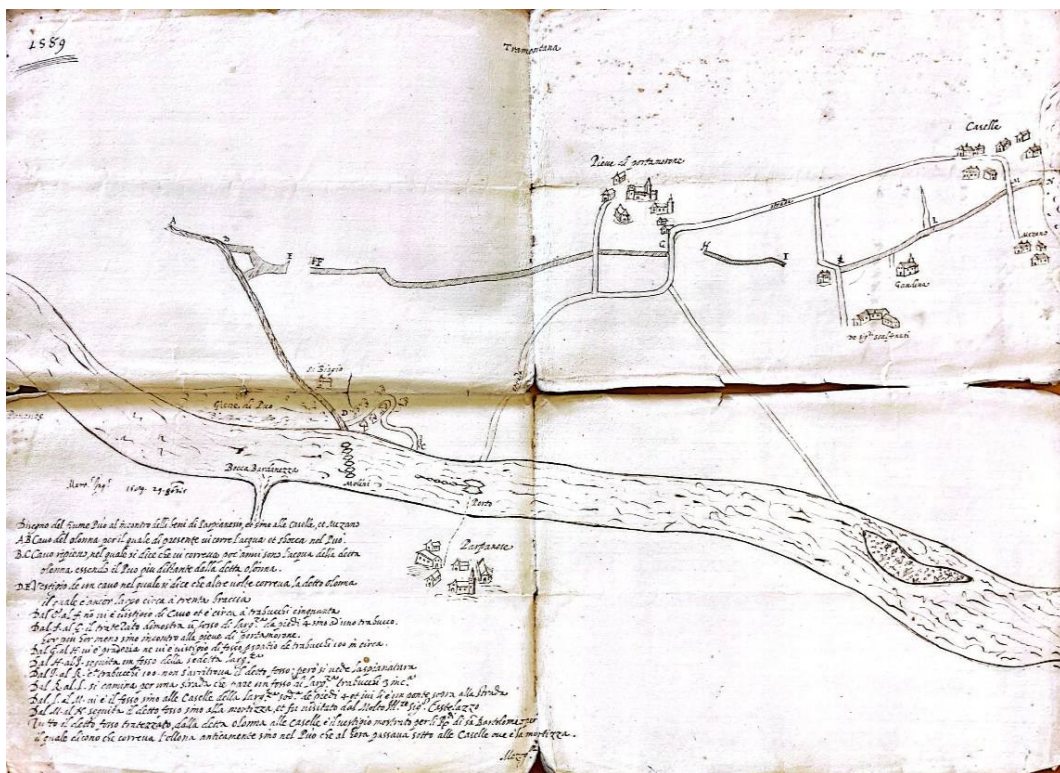 1589
Tramontana
Caselle
Pieve di portamorone
strada
A
D
E
F
G
H
I
K
L
M
N
Mezano
Gandina
S. Biagio
Giene di Puo
Bocca Bardinezza
Molini
Porto
Parpanese
Disegno del fiume Puo al incontro delli beni di Parpaneso, et sino alle Caselle, et Mezano
A B Cavo del olonna per il quale di presente vi corre l'acqua et sbocca nel Puo.
B.C. Cavo ripieno nel quale si dice che vi correva per anni sono l'acqua della detta
olonna essendo il Puo piu distante della detta olonna.
D.E. Vestigio de un cavo nel quale si dice che altre volte correva la detta olonna
il quale è ancor largo circa à trenta braccia
Dal E. al F. no vi è vestigio di Cavo et è circa à trabucchi cinquanta
Dal F. al G. il tratellato dimostra u. fosso di larg.za da piedi 4 sino ad uno trabucco.
hor piu hor meno sino incontro alla pieve di portamorone.
Dal G. al H. vi è praderia ne vi è vistigio di fosso spatio de trabucchi 100 in circa.
Dal H. al I. seguita un fosso della sudetta larg.za
Dal I. al K. è trabucchi 100. non s'arritrova il detto fosso; però si vede la spianatura
Dal K. al L. si camina per una strada che pare un fosso di larg.za trabucchi 3 inc.a
Dal L. al M. vi è il fosso sino alle Caselle della larg.za sod.ta de piedi 4 et ivi li è un ponte sopra alla strada
Dal M. al N. seguita il detto fosso sino alla mortizza, et fu visitato dal Molto Ill.re sig.r Castelazzo
Tutto il detto fosso tratezzato, dalla detta olonna alle Caselle è il vestigio mostrato per li di sn Bartolomeo per
il quale dicono che correva l'ollona anticamente sino nel Puo che al hora passava sotto alle Caselle ove è la mortizza.